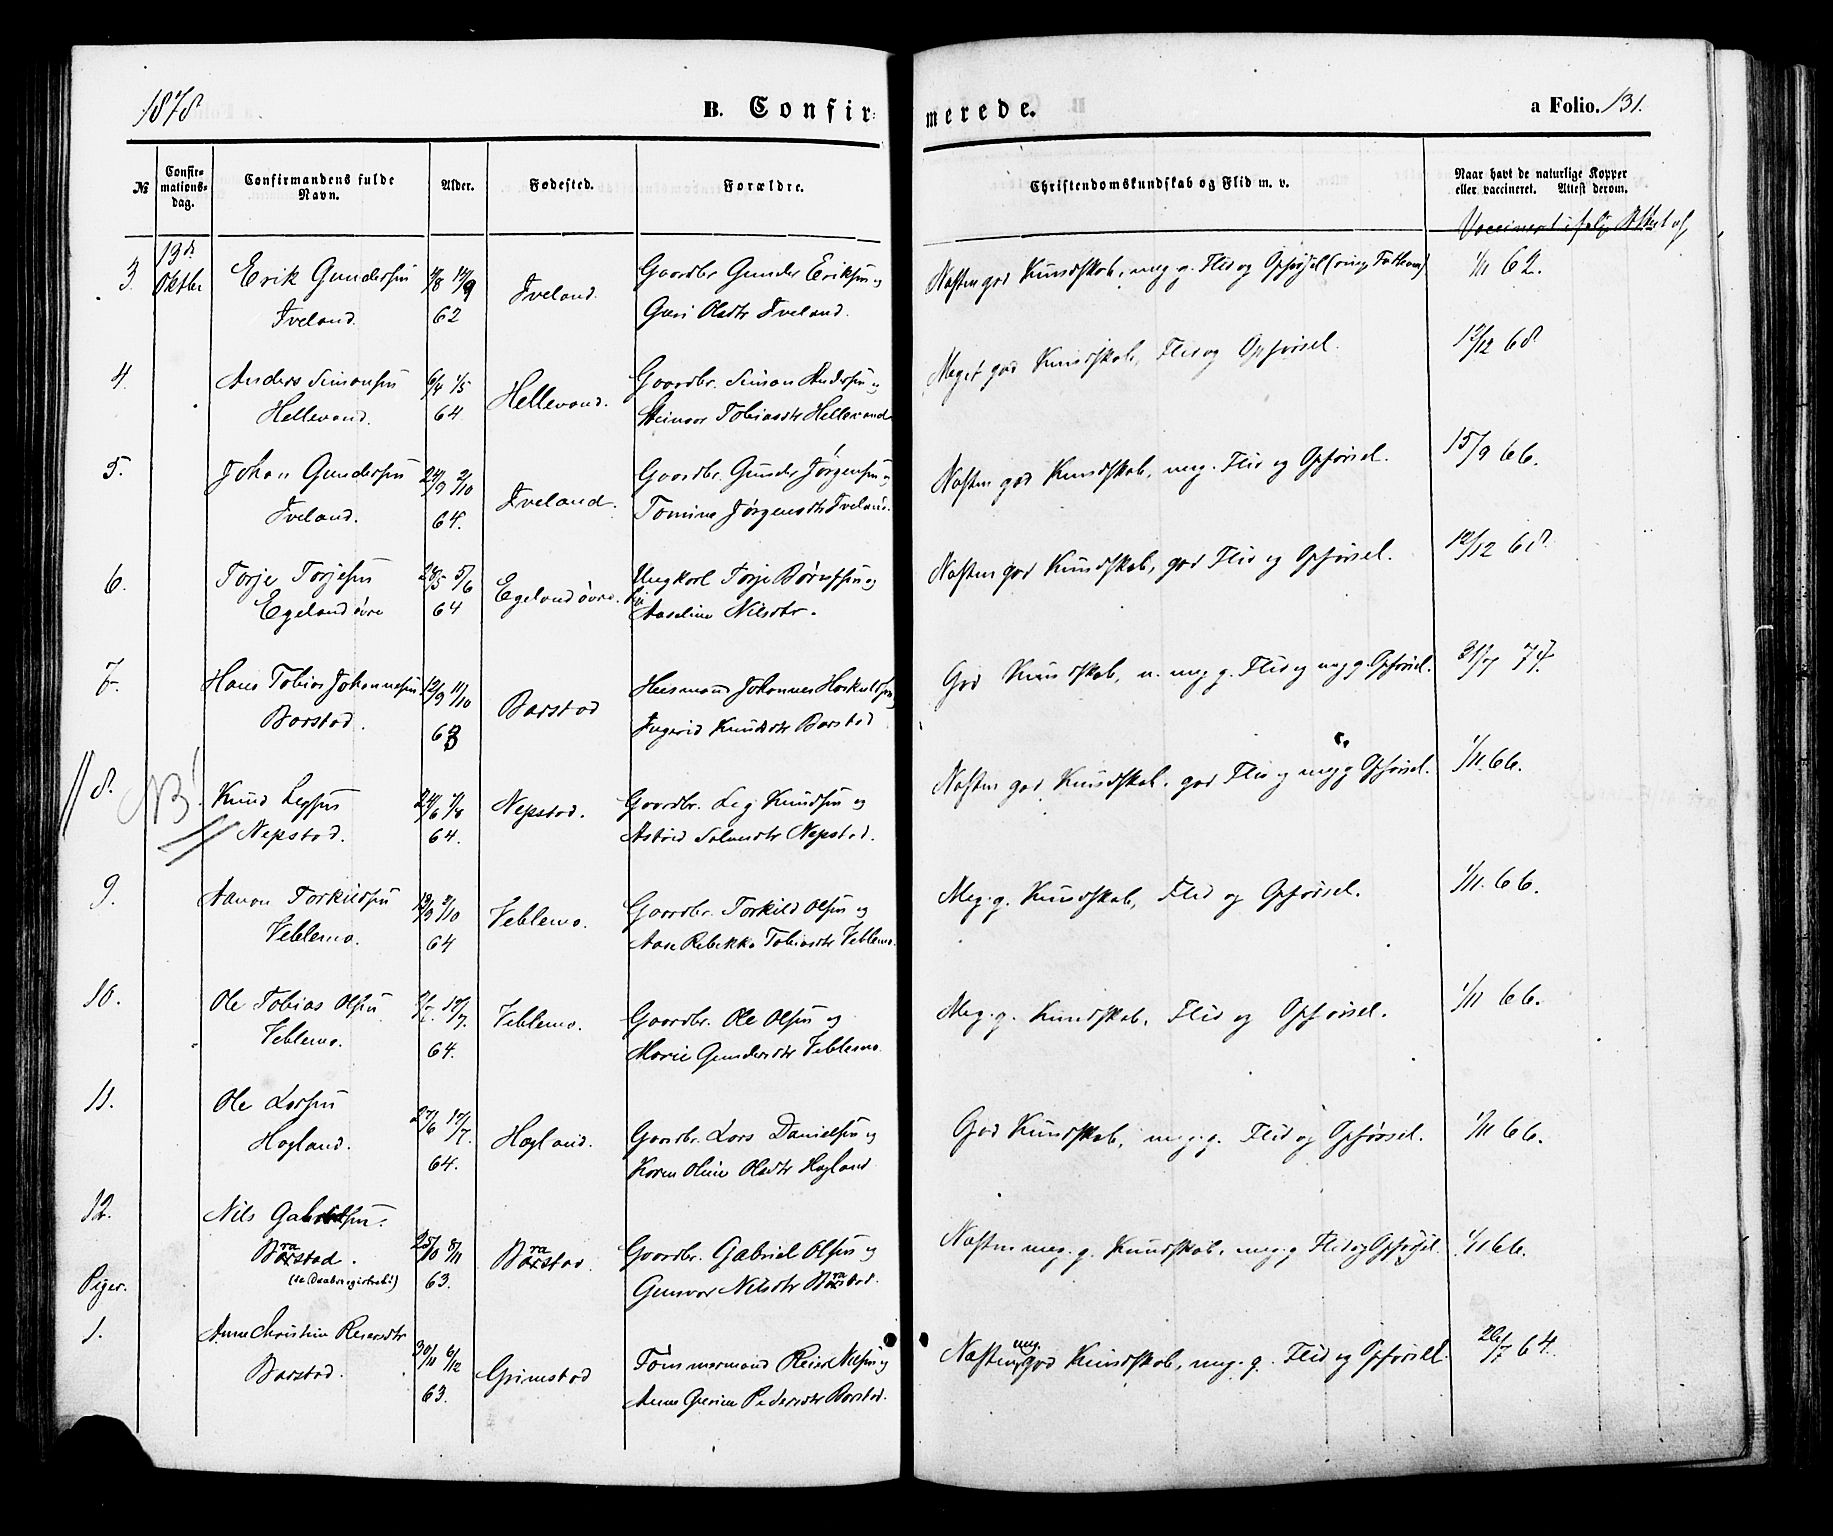 1878
B. Confirmerede.
a Folio. 131.
№
Confirmationsdag.
Confirmandens fulde Navn.
Alder.
Fødested.
Forældre.
Christendomskundskab og Flid m. v.
Naar havt de naturlige Kopper eller vaccineret. Attest derom.
Vaccineret ifølge Attest af
3. 13de Oktbr Erik Gundersen 62 Iveland. Gaardbr. Gunder Eriksen og Næsten god Kundskab, meg. g. Flid og Opførsel 1/11 62.
Iveland. Guri Olsdtr Iveland.
4. Anders Simonsen 6/4 1/5 64 Hellevand. Gaardbr. Simon Andersen og Meget god Kundskab, Flid og Opførsel. 12/12 68.
Hellevand. Tobiasdtr Hellevand
5. Johan Gundersen 24/9 2/10 64. Iveland. Gaardbr. Gunder Jørgensen og Næsten god Kundskab, meg. Flid og Opførsel. 15/9 66.
Iveland. Tomine Jørgensdtr Iveland.
6. Torje Torjesen 28/5 5/6 64 Egeland øvre. Ungkarl Torje Børufsen og Næsten god Kundskab, god Flid og Opførsel. 12/12 68.
Egeland øvre Aaseline Nilsdtr.
7. Hans Tobias Johannesen 12/9 11/10 63 Barstad Huusmand Johannes og God Kundskab, n. meg g. Flid og meg g. Opførsel. 31/7 74.
Barstad. Ingerid Knudsdtr Barstad
8. NB! Knud Legsen 24/6 7/8 64. Nepstad. Gaardbr. Leg Knudsen og Næsten god Kundskab, god Flid og meg g Opførsel. 1/11. 66.
Nepstad. Astrid Salvesdtr Nepstad.
9. Aanon Torkildsen 64 Veblemo. Gaardbr. Torkild Olsen og Meg. g. Kundskab, Flid og Opførsel. 1/11. 66.
Veblemo. Aase Rebekka Tobiasdtr Veblemo.
10. Ole Tobias Olsen 64. Veblemo. Gaardbr. Ole Olsen og Meg. g. Kundskab, Flid og Opførsel. 1/11 66.
Veblemo. Marie Gundersdtr Veblemo.
11. Ole Larsen 27/6 17/7. 64. Hagland. Gaardbr. Lars Danielsen og God Kundskab, meg. g. Flid og Opførsel. 1/11 66.
Hagland. Karen Oline Olsdtr Hagland
12. Nils Gabrielsen. 8/11 63. Brastad. Gaardbr. Gabriel Olsen og Næsten meg. g. Kundskab, meg. g Flid og Opførsel. 1/11 66.
Brastad. Gunvor Nilsdtr Brastad.
Piger.
1. Anne Christine Reiersdtr 30/11 6/12 63. Grimstad Tømmermand Reier Nilsen og Næsten meg. god Kundskab, meg. g. Flid og Opførsel. 26/7 64.
Barstad. Anne Pedersdtr Barstad.